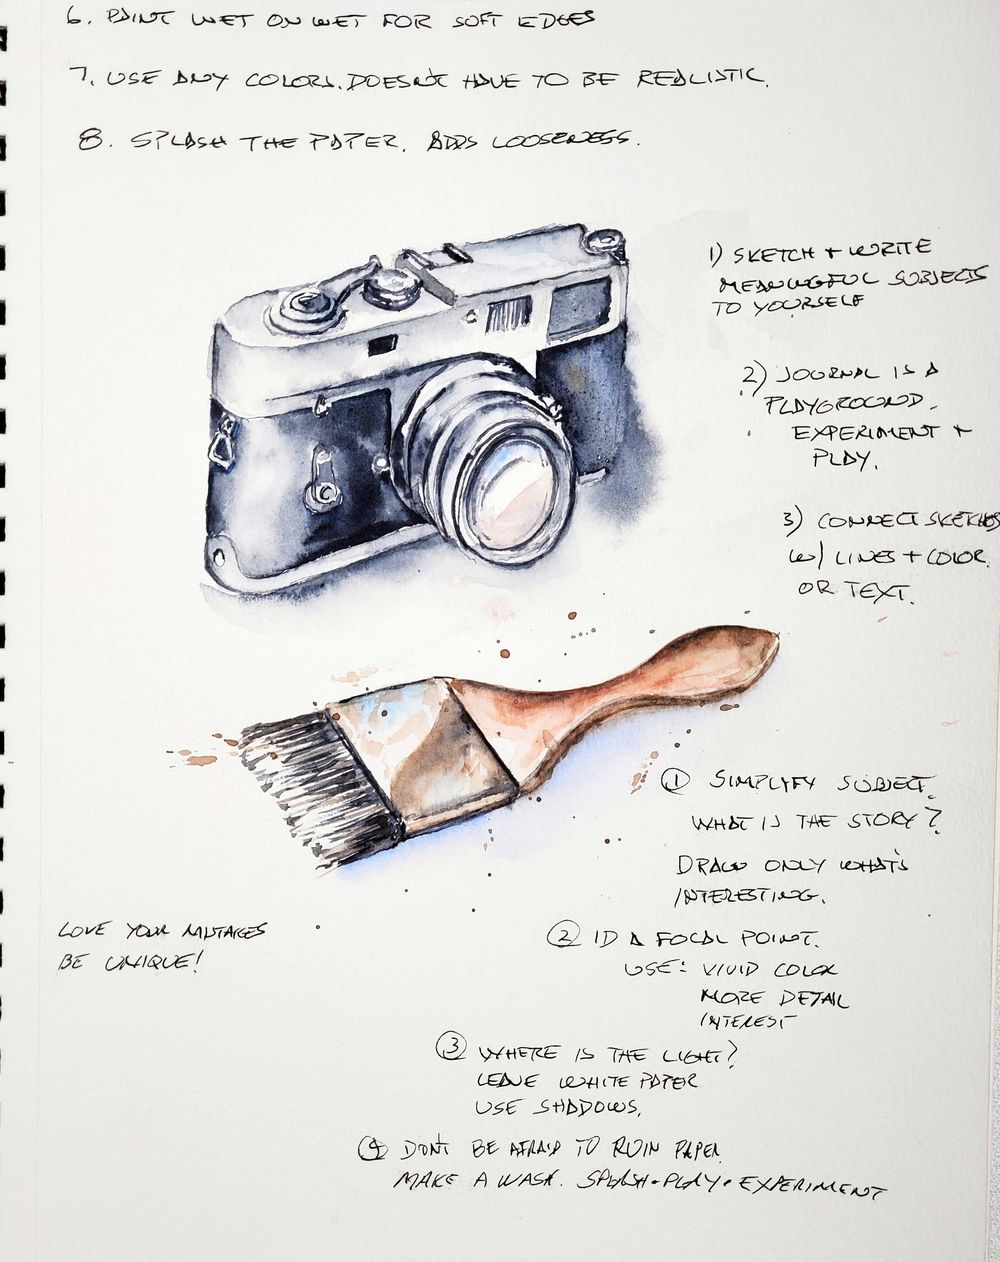 6. PAINT WET ON WET FOR SOFT EDGES
7. USE ANY COLORS. DOESN'T HAVE TO BE REALISTIC.
8. SPLASH THE PAPER. ADDS LOOSENESS.
1) SKETCH + WRITE
MEANINGFUL SUBJECTS
TO YOURSELF
2) JOURNAL IS A
PLAYGROUND.
EXPERIMENT +
PLAY.
3) CONNECT SKETCHES
W/ LINES + COLOR
OR TEXT.
1 SIMPLIFY SUBJECT.
WHAT IS THE STORY?
DRAW ONLY WHAT'S
INTERESTING.
LOVE YOUR MISTAKES
BE UNIQUE!
2 ID A FOCAL POINT.
USE: VIVID COLOR
MORE DETAIL
INTEREST
3 WHERE IS THE LIGHT?
LEAVE WHITE PAPER
USE SHADOWS.
4 DON'T BE AFRAID TO RUIN PAPER.
MAKE A WASH. SPLASH • PLAY • EXPERIMENT